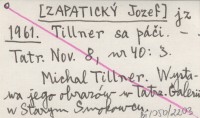 [ZAPATICKÝ Jozef] jz
1961. Tillner sa páči. —
Tatr. Nov. 8, nr 40: 3.
Michal Tillner. Wysta-
wa jego obrazów w Tatrz. Galerii
w Starym Smokowcu.